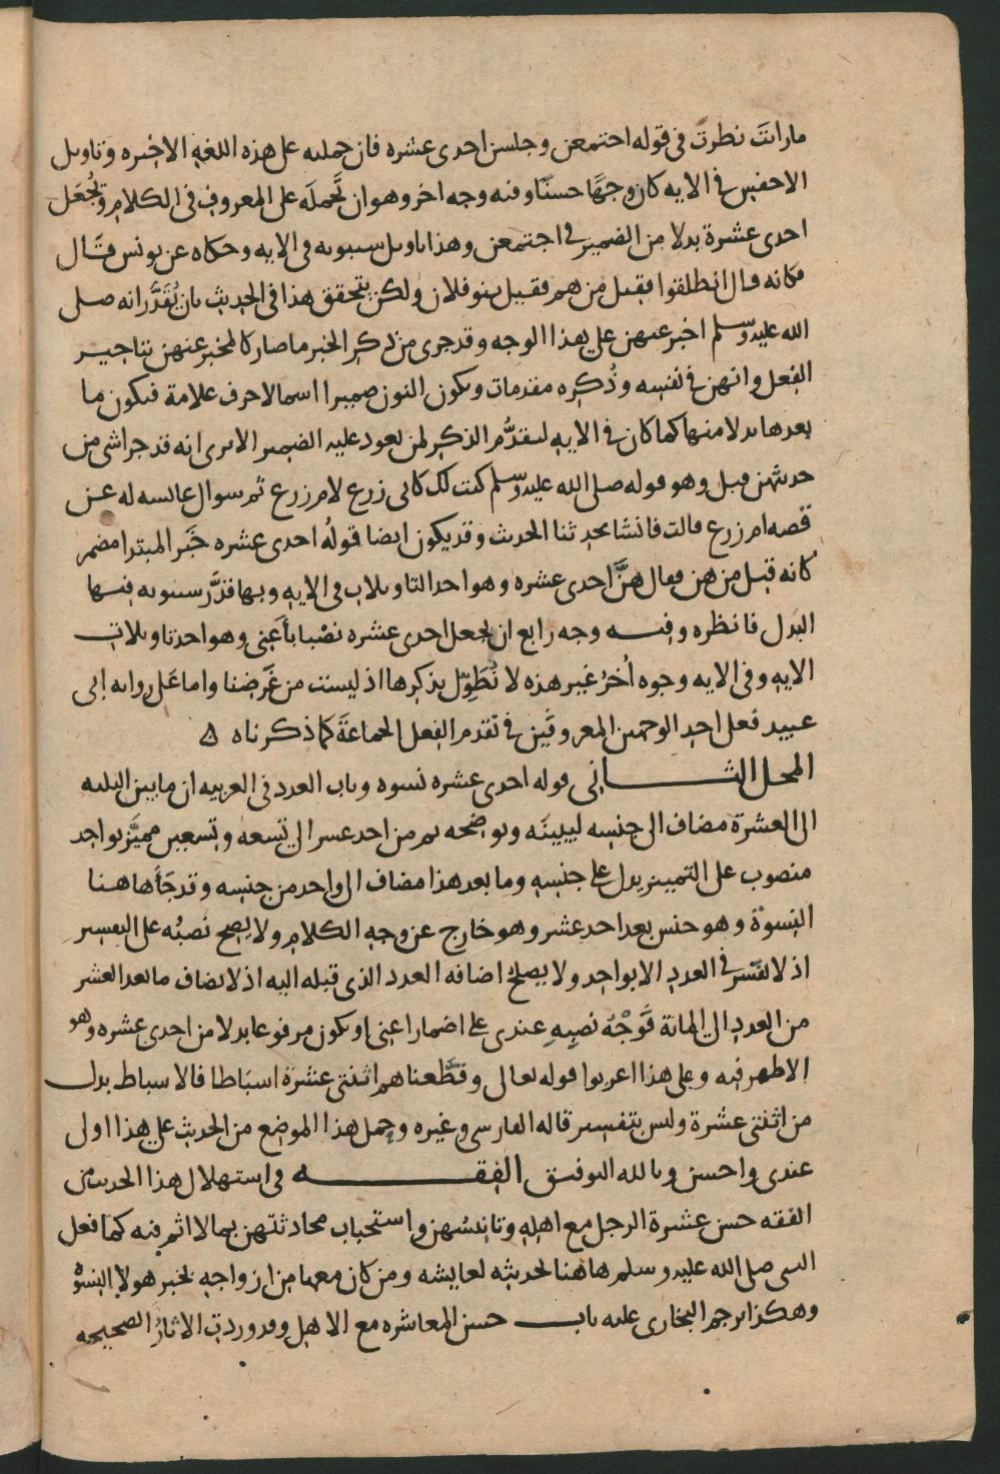 ما رانتَ نظرتَ فى قوله اجتمعن وجلسن احدى عشره فان حملته على هذه اللغه الاخيره وتاويل
الاخفش فى الايه كان وجهًا حسنًا وفيه وجه اخر وهو ان تَحملَه على المعروف فى الكلام وتُجعَل
احدى عشرة بدلا من الضمير فى اجتمعن وهذا تاويل سيبويه فى الايه وحكاه عن يونس فقال
فكانه قال انطلقوا فقيل من هم فقيل بنو فلان ولكن يتحقق هذا فى الحديث بان يُقَدَّر انه صلى
الله عليه وسلم اخبر عنهن على هذا الوجه وقد جرى من ذكر الخبر ما صار كالمخبر عنهن بتاخير
الفعل وانهن فى نفسه وذُكره مقدمات ويكون النون ضميرا اسما لا حرف علامة فيكون ما
بعدها بدلا منها كما كان فى الايه لتقدُّم الذكر لمن يعود عليه الضمير الا ترى انه قد جرا شى من
حديثهن قبل وهو قوله صلى الله عليه وسلم كنت لك كابى زرع لام زرع ثم سوال عايشه له عن
قصه ام زرع قالت فانشا يحدثنا الحديث وقد يكون ايضا قولُه احدى عشره خَبَر المبتدا مضمر
كانه قيل من هن فقال هنَّ احدى عشره وهو احد التاويلات فى الايه وبها قدَّر سيبويه فيها
البدل فانظره وفيه وجه رابع ان يجعل احدى عشره نصْبا بأَعْنى وهو احد تاويلات
الايه وفى الايه وجوه اُخرُ غير هذه لا نُطَوِّل بذكرها اذ ليست من غَرَضنا واما على روايه ابى
عبيد فعلى احد الوجهين المعروفَين فى تقدم الفعل الجماعةَ كما ذكرناه ه
المحل الثانى قوله احدى عشره نسوه وباب العدد فى العربيه ان ما بين الثلثه
الى العشرة مضاف الى جنسه ليبينَه ويوضحه ثم من احد عشر الى تسعه وتسعين مميَّز بواحد
منصوب على التمييز يدل على جنسه وما بعد هذا مضاف الى واحد من جنسه وقد جَأ هاهنا
النسوة وهو جنس بعد احد عشر وهو خارج عن وجه الكلام ولا يصح نصبُه على التفسير
اذ لا يفسّر فى العدد الا بواحد ولا يصلح اضافه العدد الذى قبله اليه اذ لا يضاف ما بعد العشر
من العدد الى المائة فَوَجْهُ نصبِهِ عندى على اضمار اعنى او يكون مرفوعا بدلا من احدى عشره وهو
الاظهر فيه وعلى هذا اعربوا قوله تعالى وقطَّعناهم اثنتى عشرة اسبَاطا فالاسباط بدل
من اثنتى عشرة وليس بتفسير قاله الفارسى وغيره وحمل هذا الموضع من الحديث على هذا اولى
عندى واحسن وبالله التوفيق الفقه فى استهلال هذا الحديث من
الفقه حسن عشرة الرجل مع اهله وتانيسهن واستحباب محادثتهن بما لا اثم فيه كما فعل
النبى صلى الله عليه وسلم هاهنا لحديثه لعايشه ومن كان معها من ازواجه بخبر هولا النسوْة
وهكذا ترجم البخارى عليه باب حسن المعاشره مع الاهل وقد وردت الاثارُ الصحيحه